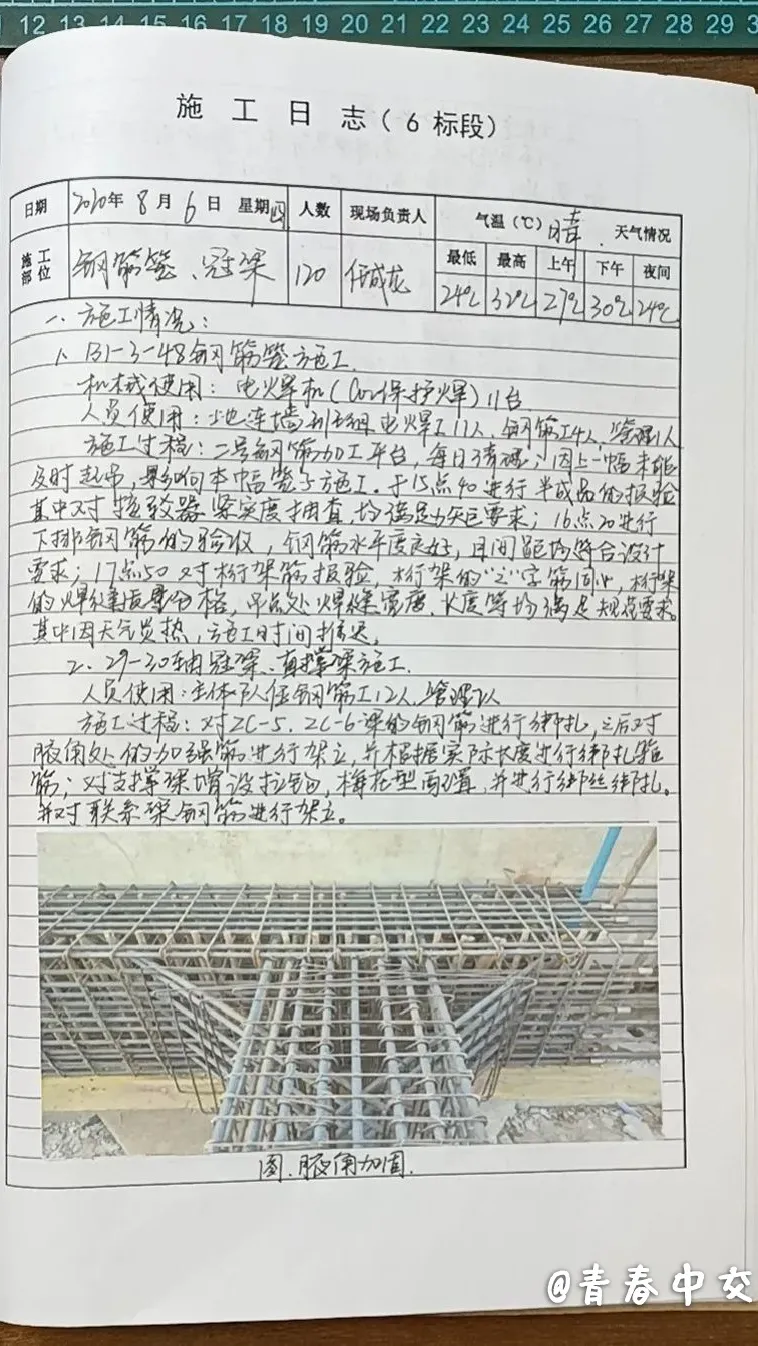 12 13 14 15 16 17 18 19 20 21 22 23 24 25 26 27 28 29 3
施工日志（6标段）
日期 2020年 8月 6日 星期四 人数 现场负责人 气温（℃）晴 天气情况
施工部位 钢筋笼、冠梁 120 任成龙 最低 最高 上午 下午 夜间
24℃ 32℃ 27℃ 30℃ 24℃
一、施工情况：
1、B1-3-48钢筋笼施工.
机械使用：电焊机（CO₂保护焊）11台
人员使用：地连墙 电焊工11人、钢筋工4人、管理1人
施工过程：二号钢筋加工平台，每日清理；因上一幅未能
及时起吊，影响本幅笼子施工.于15点40进行半成品的报验
其中对接驳器紧实度抽查,均满足力矩要求；16点20进行
下排钢筋的验收，钢筋水平度良好，且间距均符合设计
要求；17点50对桁架筋报验，桁架的"之"字筋 ，桁架
的焊缝质量合格，吊点处焊缝宽度、长度等均满足规范要求。
其中因天气炎热，施工时间推迟。
2、29-30轴冠梁、直撑梁施工.
人员使用：主体队伍钢筋工12人、管理2人
施工过程：对ZC-5、ZC-6梁的钢筋进行绑扎，之后对
腋角处的加强筋进行架立，并根据实际长度进行绑扎箍
筋；对支撑梁增设拉钩，梅花型布置，并进行绑丝绑扎。
并对联系梁钢筋进行架立。
图.腋角加固.
@青春中交